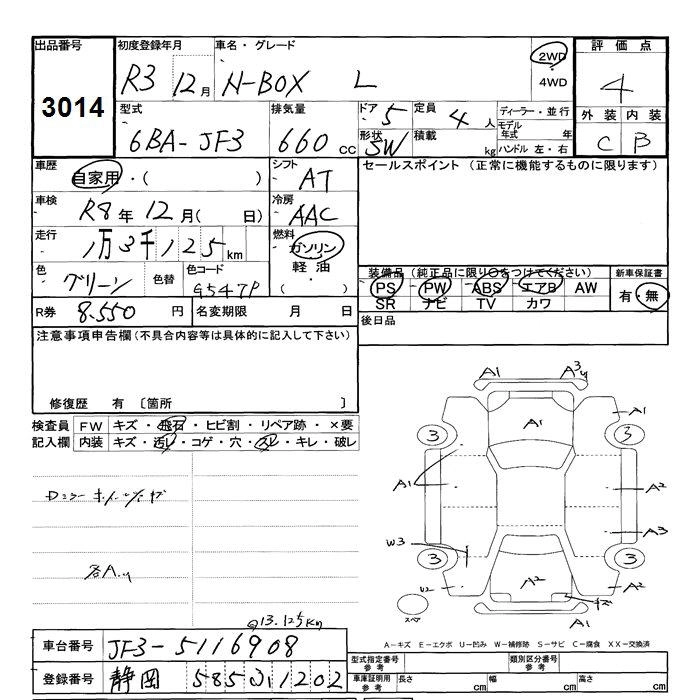 出品番号 初度登録年月 車名・グレード 評価点
3014 R3 12月 N-BOX L 2WD 4WD 4
型式 排気量 ドア 5 定員 4人 ディーラー・並行 外装 内装
6BA-JF3 660cc 形状 SW 積載 kg モデル年式 年 ハンドル 左・右 C B
車歴 自家用・( ) シフト AT セールスポイント(正常に機能するものに限ります)
車検 R8年12月( 日) 冷房 AAC
走行 1万3千125km 燃料 ガソリン 軽油 ( )
色 グリーン 色替 色コード G547P
装備品(純正品に限り○をつけてください) 新車保証書
PS PW ABS エアB AW 有・無
SR ナビ TV カワ
R券 8.550円 名変期限 月 日 後日品
注意事項申告欄(不具合内容等は具体的に記入して下さい)
修復歴 有 〔箇所 〕
検査員記入欄 FW キズ・飛石・ヒビ割・リペア跡・×要
内装 キズ・汚レ・コゲ・穴・スレ・キレ・破レ
各A
@13.125km
A1 A3
A1
A1
3 3
A1 A2
A3
W3
3 3
U2 A2 A2
スペア A1
A-キズ E-エクボ U-凹み W-補修跡 S-サビ C-腐食 XX-交換済
車台番号 JF3-5116908
登録番号 静岡 585 1202
型式指定番号 参考 類別区分番号 参考
車庫証明用 参考 長さ cm 幅 cm 高さ cm